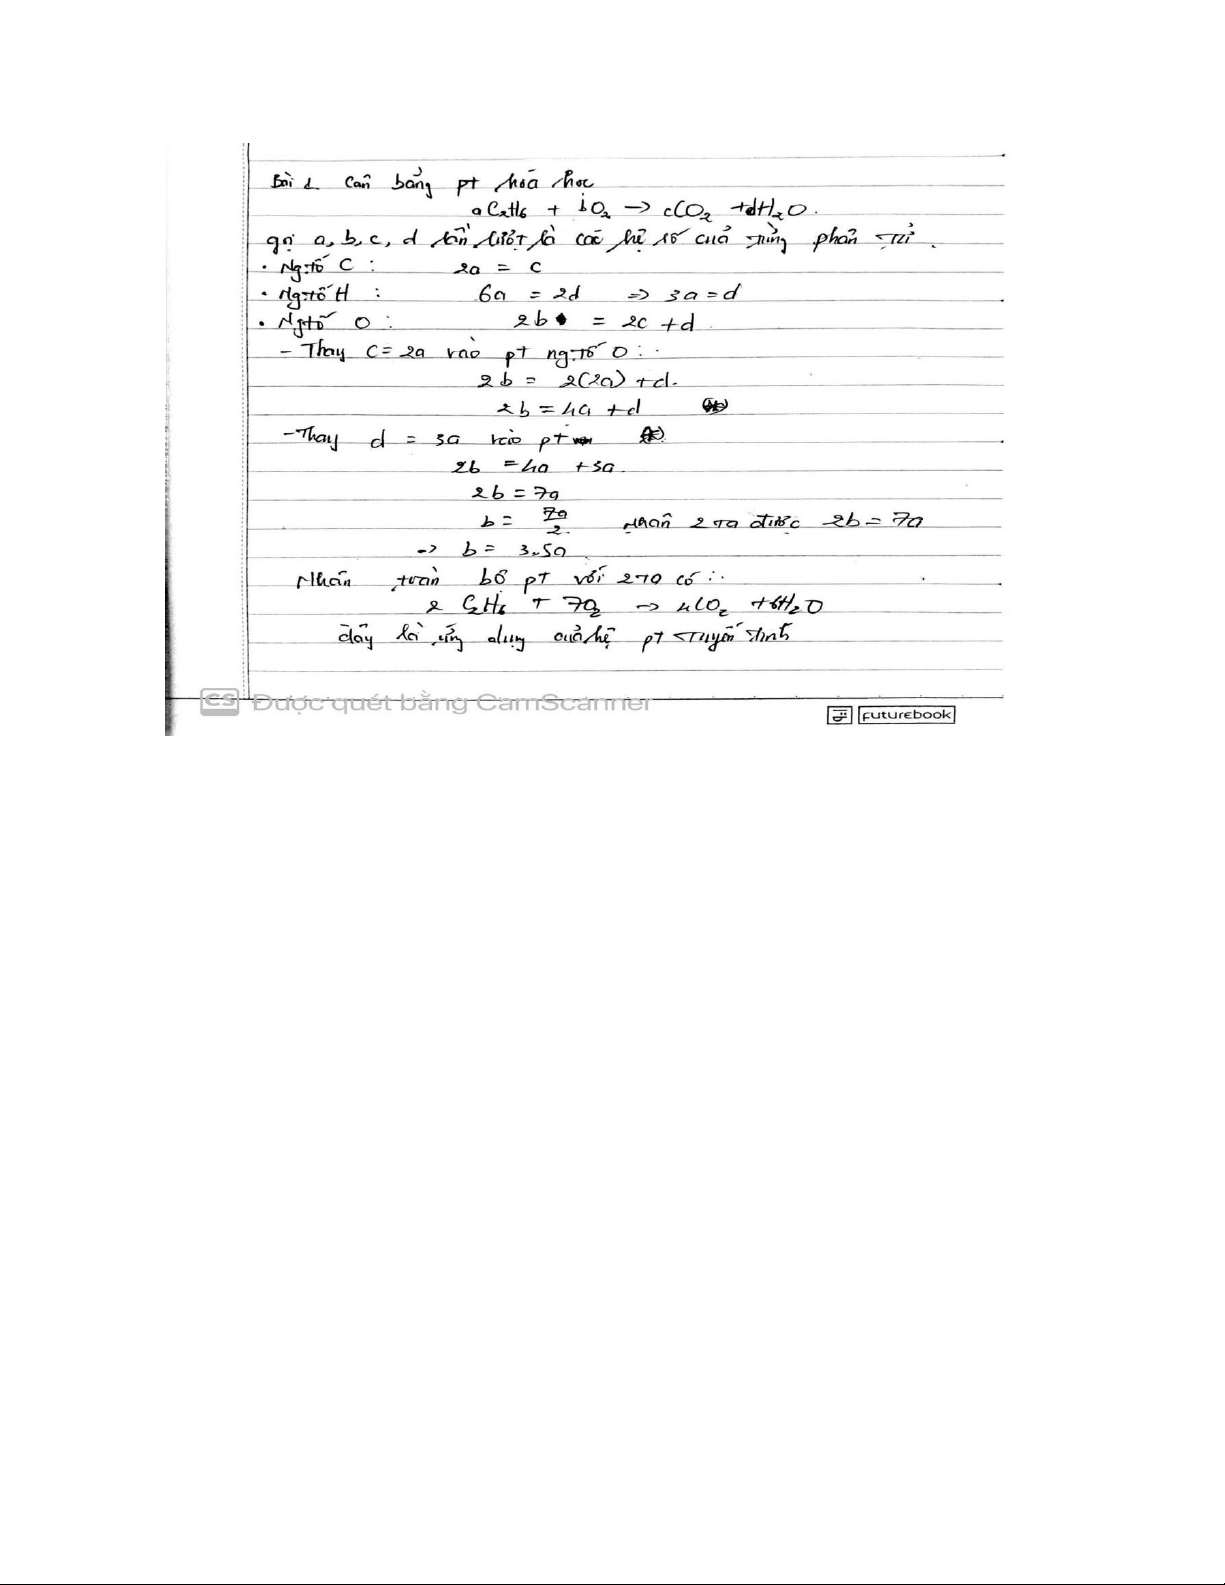 Bài 1 Cân bằng pt hoá học
aC2H6 + bO2 -> cCO2 + dH2O.
gọi a, b, c, d lần lượt là các hệ số của từng phân tử.
• Ng.tố C : 2a = c
• Ng.tố H : 6a = 2d => 3a = d
• Ng.tố O : 2b = 2c + d
- Thay c = 2a vào pt ng.tố O :
2b = 2(2a) + d.
2b = 4a + d (*)
- Thay d = 3a vào pt (*)
2b = 4a + 3a
2b = 7a
b = 7a/2 nhân 2 ta được 2b = 7a
-> b = 3.5a
Nhân toàn bộ pt với 2 ta có :
2 C2H6 + 7O2 -> 4CO2 + 6H2O
đây là ứng dụng của hệ pt tuyến tính
CS Được quét bằng CamScanner
Futurebook